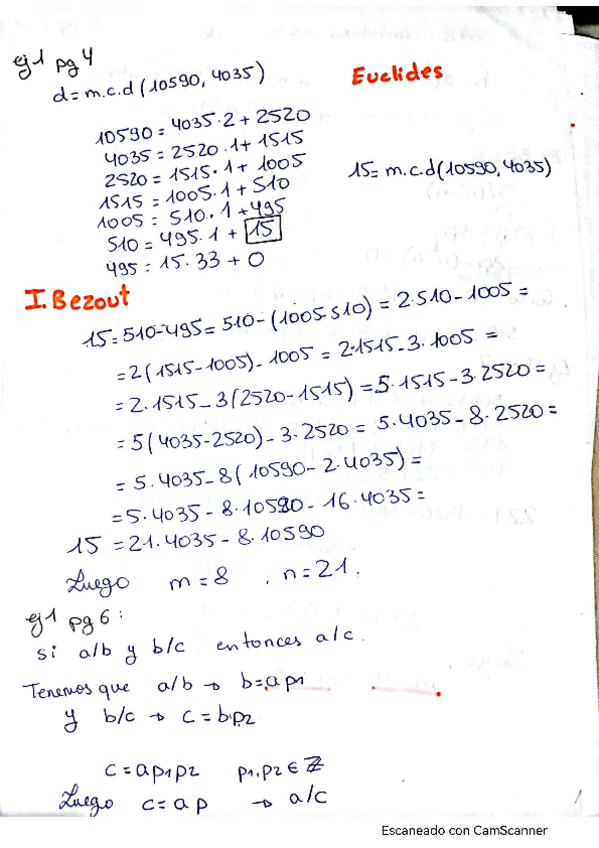 ej1 pg 4
d = m.c.d (10590, 4035)
Euclides
10590 = 4035·2 + 2520
4035 = 2520·1 + 1515
2520 = 1515·1 + 1005
1515 = 1005·1 + 510
1005 = 510·1 + 495
510 = 495·1 + 15
495 = 15·33 + 0
15 = m.c.d (10590, 4035)
I. Bezout
15 = 510-495 = 510-(1005-510) = 2·510-1005 =
= 2(1515-1005)-1005 = 2·1515-3·1005 =
= 2·1515-3(2520-1515) = 5·1515-3·2520 =
= 5(4035-2520)-3·2520 = 5·4035-8·2520 =
= 5·4035-8(10590-2·4035) =
= 5·4035-8·10590-16·4035 =
15 = 21·4035-8·10590
Luego m = 8, n = 21.
ej1 pg 6:
si a/b y b/c entonces a/c.
Tenemos que a/b → b = a p1
y b/c → c = b·p2
c = a p1 p2 p1·p2 ∈ Z
Luego c = a p → a/c
1
Escaneado con CamScanner